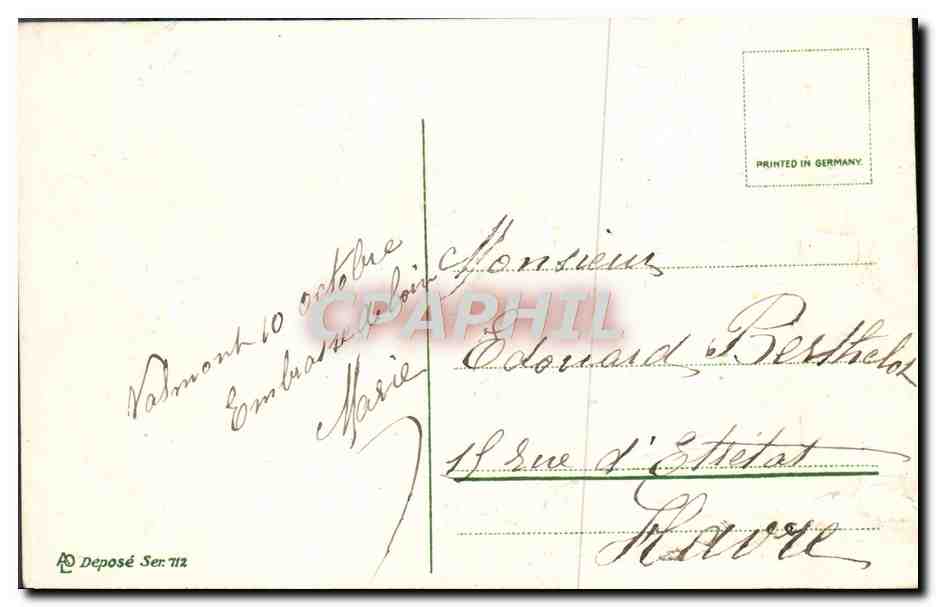 PRINTED IN GERMANY.
Valmont 10 octobre
Embrasse de loin
Marie
Monsieur
Edouard Berthelot
15 rue d'Ettétat
Havre
CPAPHIL
Deposé Ser. 712